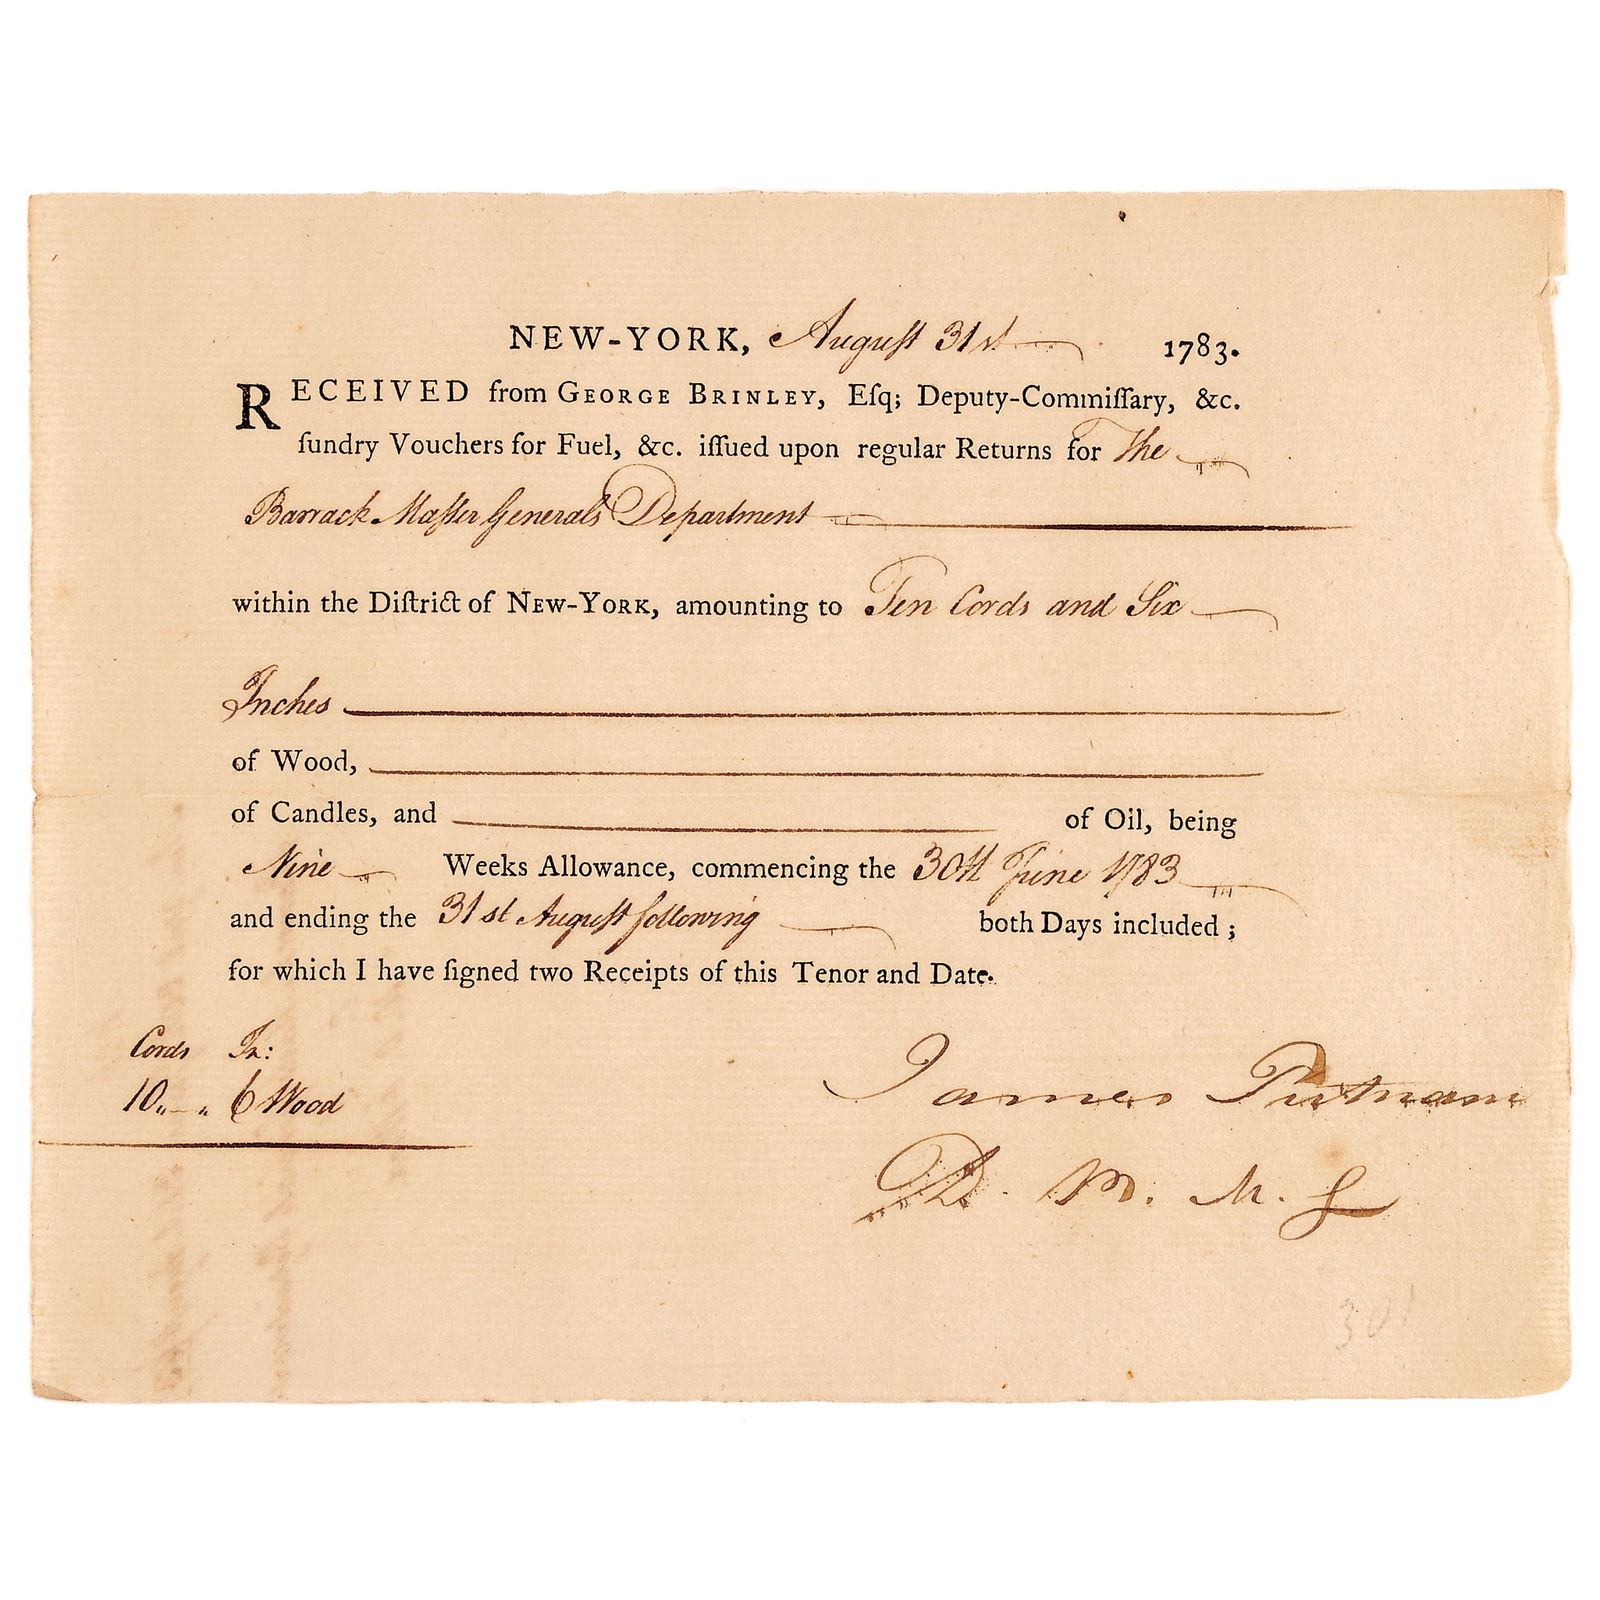 NEW-YORK, August 31st 1783.
RECEIVED from GEORGE BRINLEY, Eſq; Deputy-Commiſſary, &c.
ſundry Vouchers for Fuel, &c. iſſued upon regular Returns for The
Barrack Maſter General's Department
within the Diſtrict of NEW-YORK, amounting to Ten Cords and Six
Inches
of Wood,
of Candles, and of Oil, being
Nine Weeks Allowance, commencing the 30th June 1783
and ending the 31st Auguſt following both Days included;
for which I have ſigned two Receipts of this Tenor and Date.
Cords In:
10 " — " 6 Wood
James Putnam
D. B. M. G
301